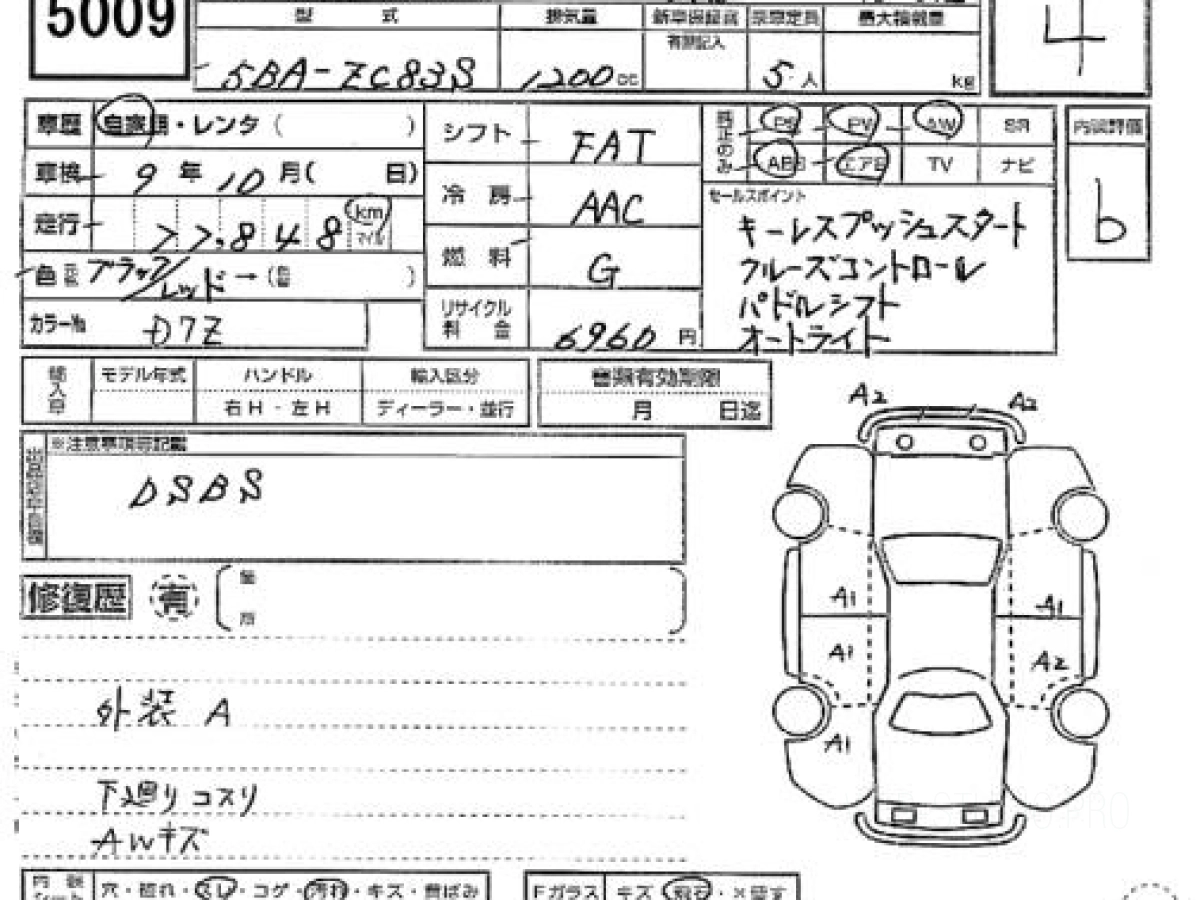 5009
型 式 排気量 新車保証書 乗車定員 最大積載量
有無記入
5BA-ZC83S 1200cc 5人 kg
4
車歴 自家用・レンタ( )
車検 9年10月( 日)
走行 77,848 km マイル
色 ブラック/レッド→( )
カラーNo D7Z
シフト FAT
冷房 AAC
燃料 G
リサイクル料金 6960円
純正のみ PS PW AW SR
ABS エアB TV ナビ
内装評価
b
セールスポイント
キーレスプッシュスタート
クルーズコントロール
パドルシフト
オートライト
輸入車 モデル年式 ハンドル 輸入区分
右H・左H ディーラー・並行
書類有効期限
月 日迄
※注意事項等記載
DSBS
修復歴 有 箇所
外装 A
下廻りコスリ
AWキズ
A2 A2
A1 A1
A1 A2
A1
内装 穴・破れ・スレ・コゲ・汚れ・キズ・黄ばみ
Fガラス キズ・飛石・×要す